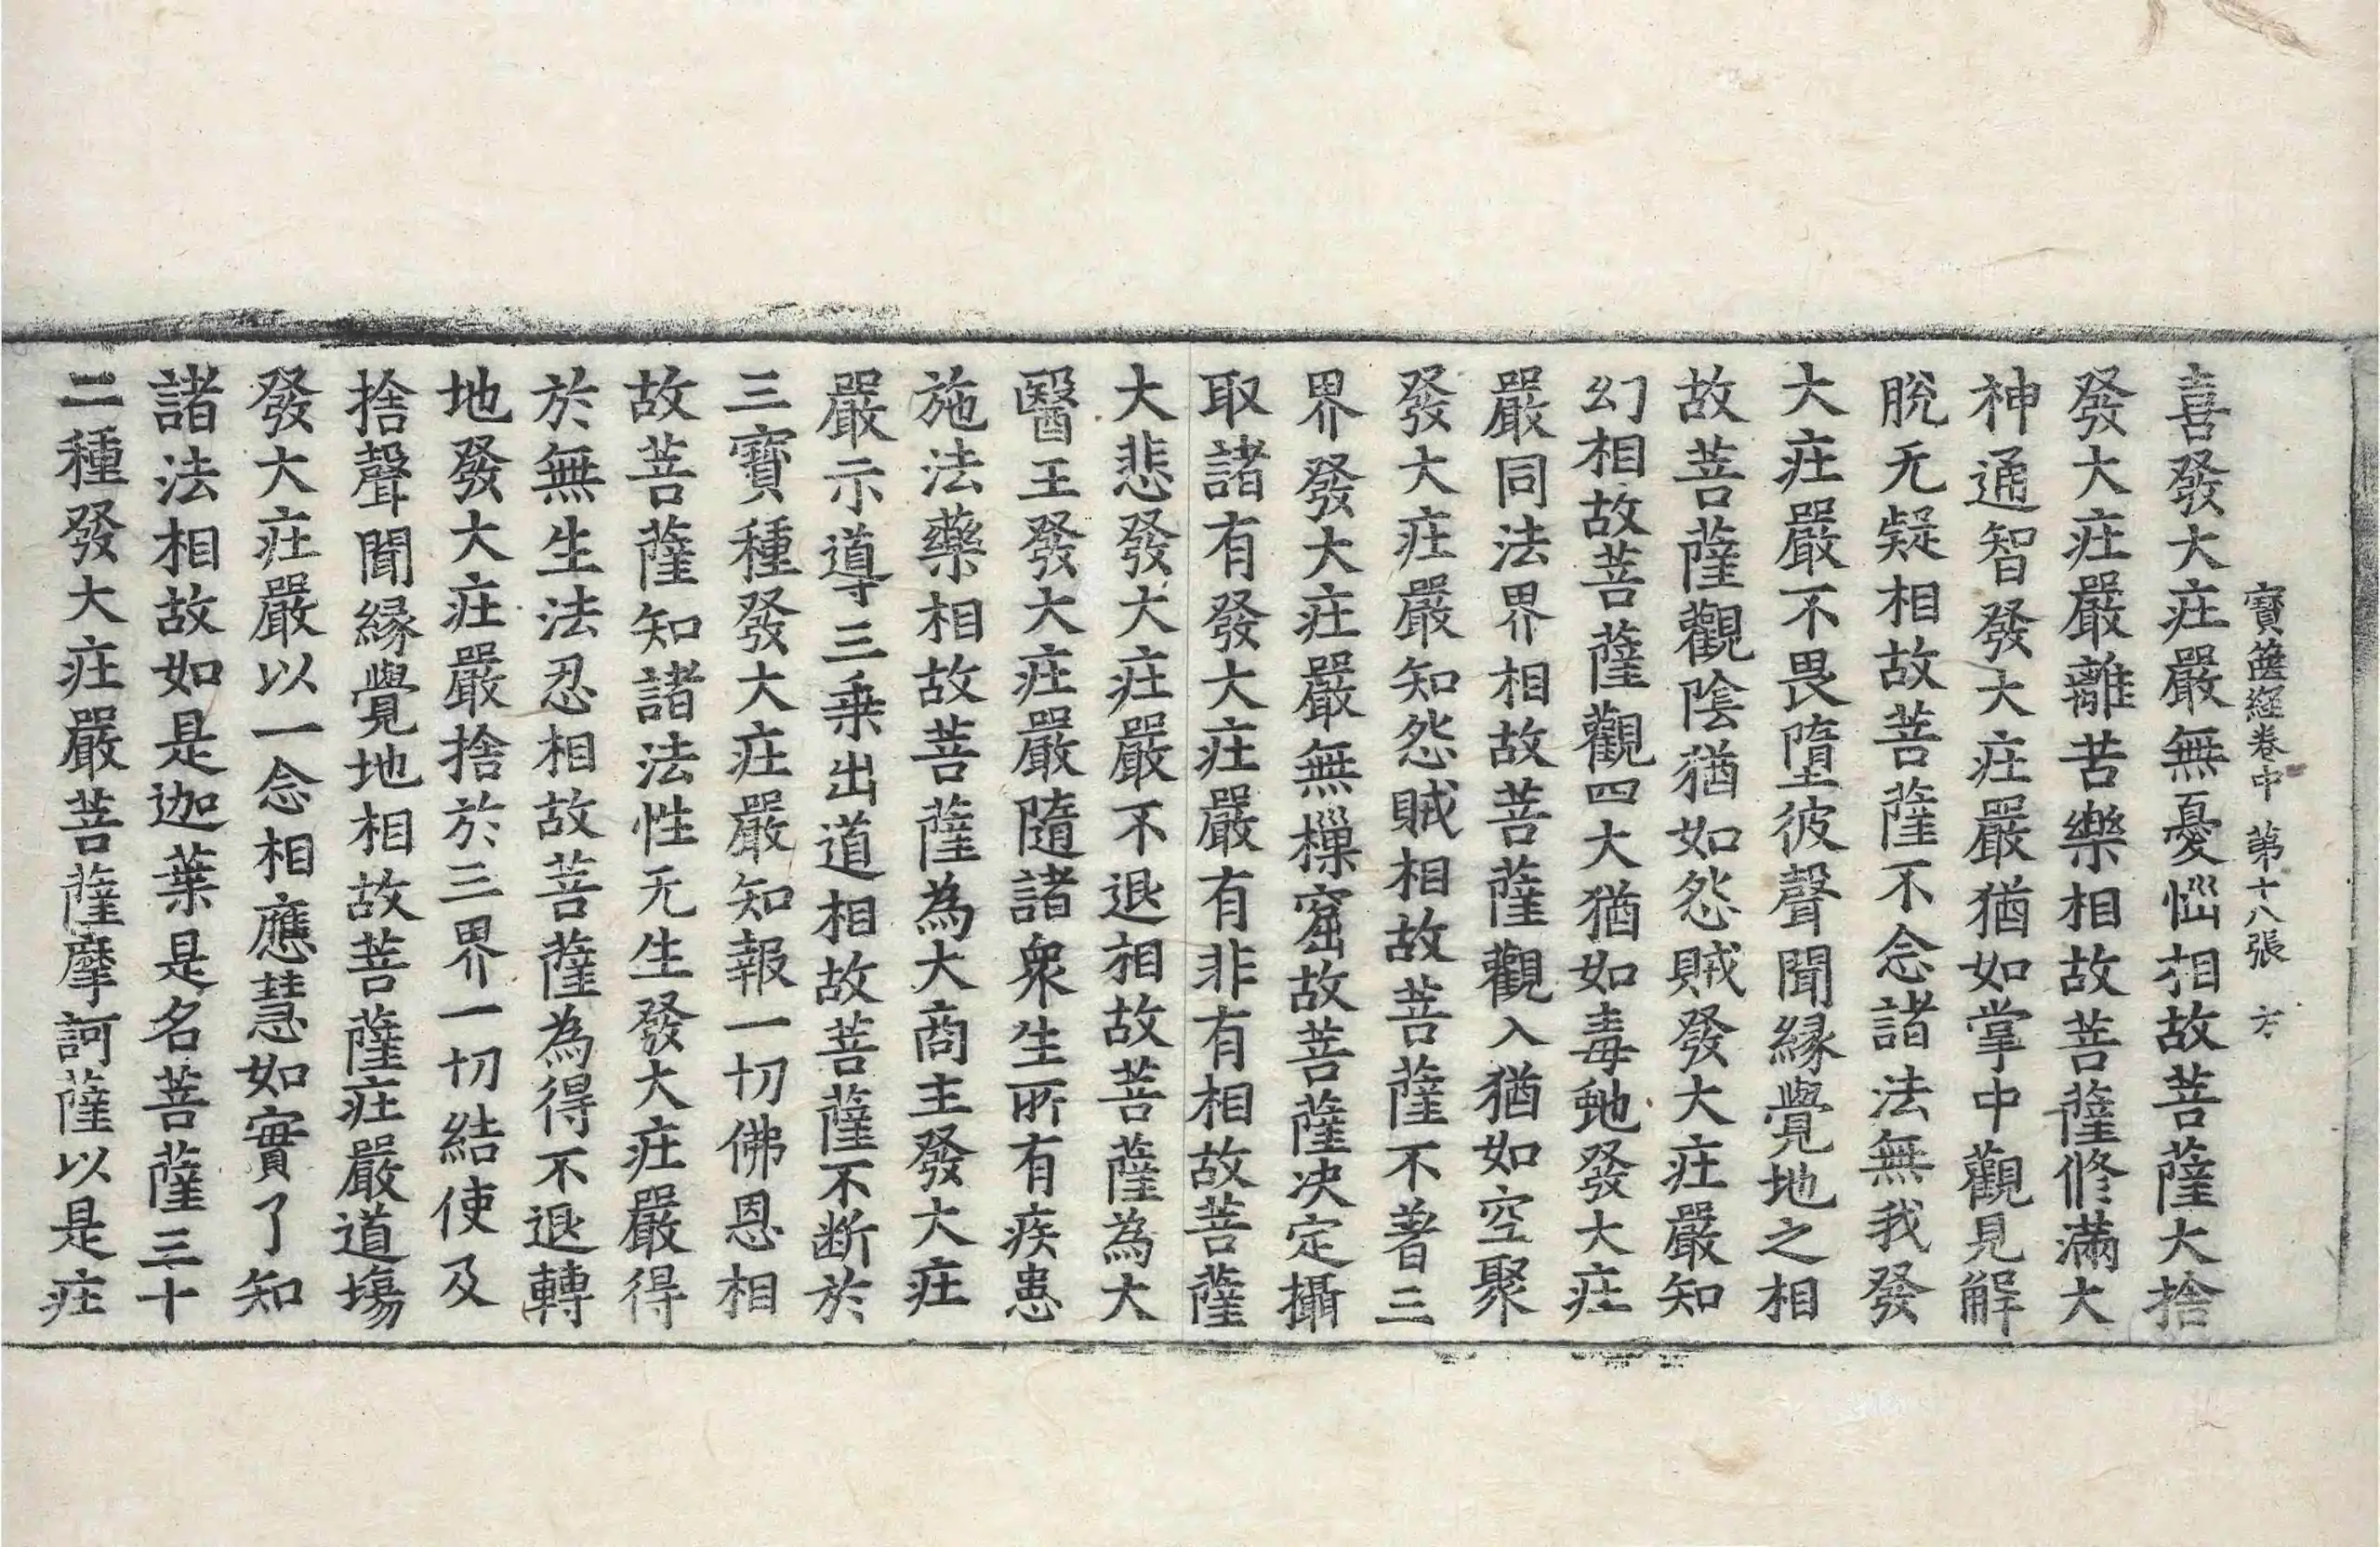 寶篋經卷中 第十八張 方
喜發大庄嚴無憂惱相故菩薩大捨
發大庄嚴離苦樂相故菩薩修滿大
神通智發大庄嚴猶如掌中觀見解
脫无疑相故菩薩不念諸法無我發
大庄嚴不畏墮彼聲聞緣覺地之相
故菩薩觀陰猶如怨賊發大庄嚴知
幻相故菩薩觀四大猶如毒虵發大庄
嚴同法界相故菩薩觀入猶如空聚
發大庄嚴知怨賊相故菩薩不著三
界發大庄嚴無樔窟故菩薩決定攝
取諸有發大庄嚴有非有相故菩薩
大悲發大庄嚴不退相故菩薩為大
醫王發大庄嚴隨諸衆生所有疾患
施法藥相故菩薩為大商主發大庄
嚴示導三乗出道相故菩薩不断於
三寶種發大庄嚴知報一切佛恩相
故菩薩知諸法性无生發大庄嚴得
於無生法忍相故菩薩為得不退轉
地發大庄嚴捨於三界一切結使及
捨聲聞緣覺地相故菩薩庄嚴道場
發大庄嚴以一念相應慧如實了知
諸法相故如是迦葉是名菩薩三十
二種發大庄嚴菩薩摩訶薩以是庄